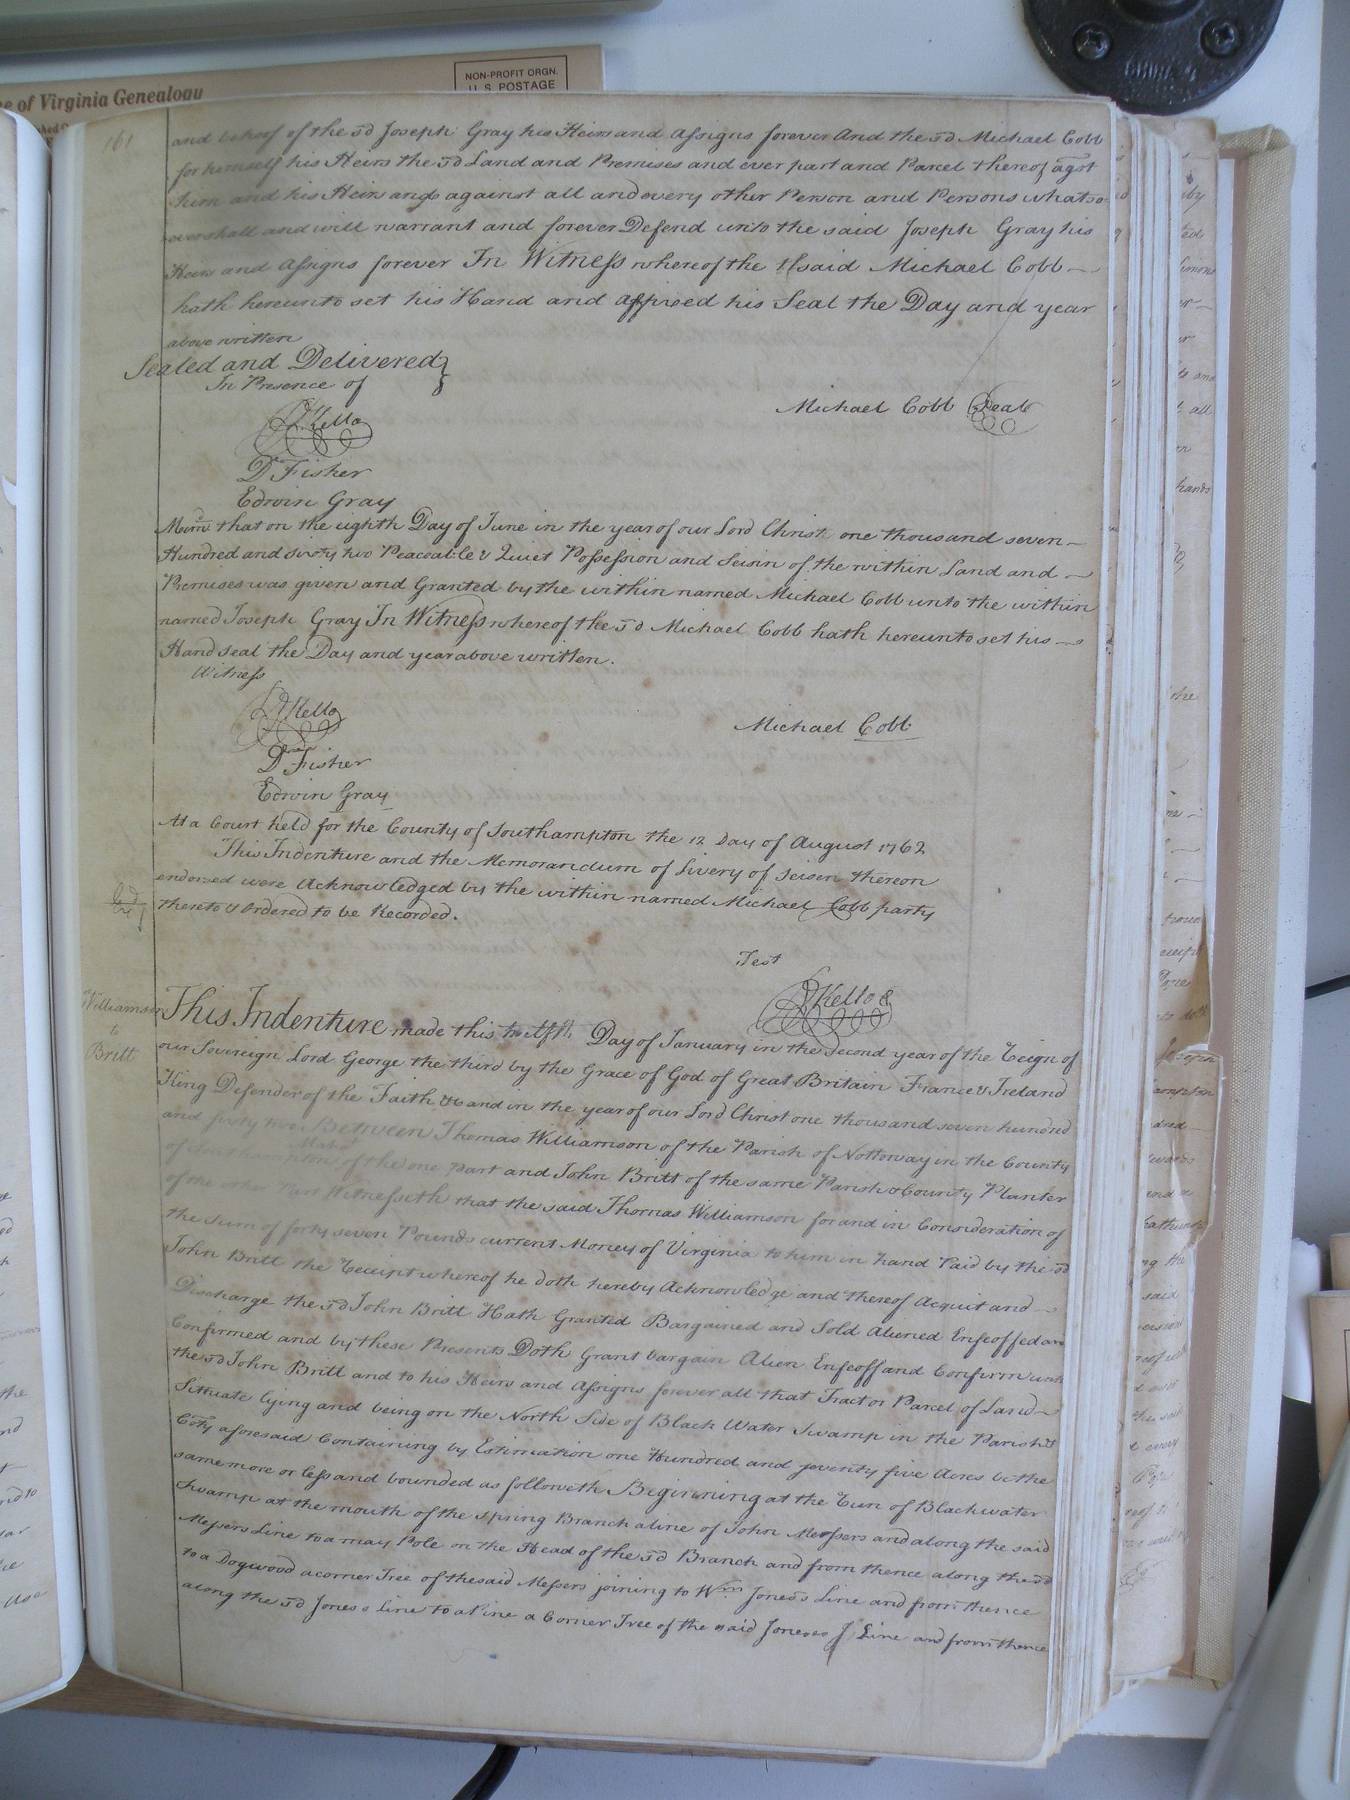 of Virginia Genealogy
NON-PROFIT ORGN.
U.S. POSTAGE
161
and behoof of the sd Joseph Gray his Heirs and Assigns forever And the sd Michael Cobb
for himself his Heirs the sd Land and Premises and ever part and Parcel thereof agst
him and his Heirs and against all and every other Person and Persons whatso
ever shall and will warrant and forever Defend unto the said Joseph Gray his
Heirs and Assigns forever In Witness whereof the said Michael Cobb
hath hereunto set his Hand and affixed his Seal the Day and year
above written
Sealed and Delivered
In Presence of
Michael Cobb Seal
Kello
D Fisher
Edwin Gray
Memd that on the eighth Day of June in the year of our Lord Christ one thousand seven
Hundred and sixty two Peaceable & Quiet Possession and Seisin of the within Land and
Premises was given and Granted by the within named Michael Cobb unto the within
named Joseph Gray In Witness whereof the sd Michael Cobb hath hereunto set his
Hand seal the Day and year above written.
Witness
Kello
Michael Cobb
D Fisher
Edwin Gray
At a Court held for the County of Southampton the 12 Day of August 1762
This Indenture and the Memorandum of Livery of Seisen thereon
endorsed were Acknowledged by the within named Michael Cobb party
thereto & Ordered to be Recorded.
Test
Kello
Williamson
to
Britt
This Indenture made this twelfth Day of January in the second year of the Reign of
our Sovereign Lord George the third by the Grace of God of Great Britain France & Ireland
King Defender of the Faith &c and in the year of our Lord Christ one thousand seven hundred
and sixty two Between Thomas Williamson of the Parish of Nottoway in the County
of Southampton of the one part and John Britt of the same Parish & County Planter
of the other Part Witnesseth that the said Thomas Williamson for and in Consideration of
the Sum of forty seven Pounds current Money of Virginia to him in hand Paid by the sd
John Britt the Receipt whereof he doth hereby Acknowledge and thereof Acquit and
Discharge the sd John Britt Hath Granted Bargained and Sold Aliened Enfeoffed an
Confirmed and by these Presents Doth Grant bargain Alien Enfeoff and Confirm unto
the sd John Britt and to his Heirs and Assigns forever all that Tract or Parcel of Land
Situate lying and being on the North Side of Black Water Swamp in the Parish &
Coty aforesaid Containing by Estimation one Hundred and seventy five Acres be the
same more or less and bounded as followeth Beginning at the Run of Blackwater
Swamp at the mouth of the Spring Branch a line of John Messers and along the said
Messers Line to a may Pole on the Head of the sd Branch and from thence along the sd
to a Dogwood a corner Tree of the said Messers joining to Wm Joness Line and from thence
along the sd Joness Line to a Pine a Corner Tree of the said Joneses Line and from thence